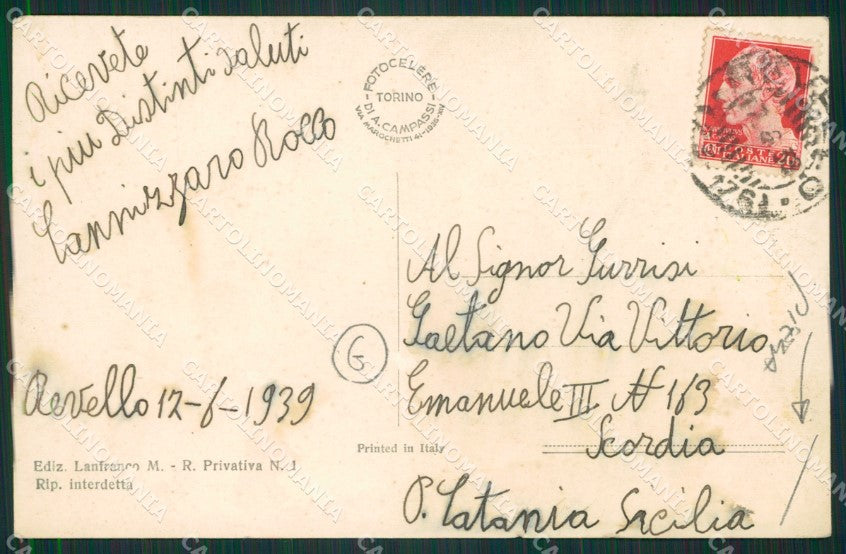 Ricevete
i più Distinti saluti
Cannizzaro Rollo
FOTOCELERE
TORINO
DI A. CAMPASSI
VIA MAROCHETTI 41 - 1936-XIV
POSTE ITALIANE
Al Signor Gurrisi
Gaetano Via Vittorio
Emanuele III N 163
Scordia
P. Catania Sicilia
G
Revello 12-6-1939
Printed in Italy
Ediz. Lanfranco M. - R. Privativa N. 1
Rip. interdetta
CARTOLINOMANIA